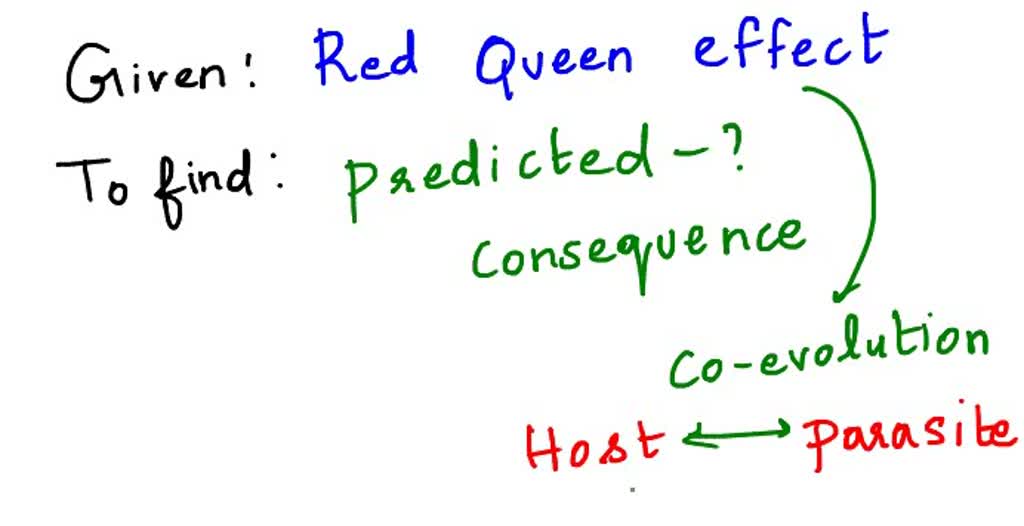 Given: Red Queen effect
To find: predicted - ?
consequence
Co-evolution
Host ↔ parasite